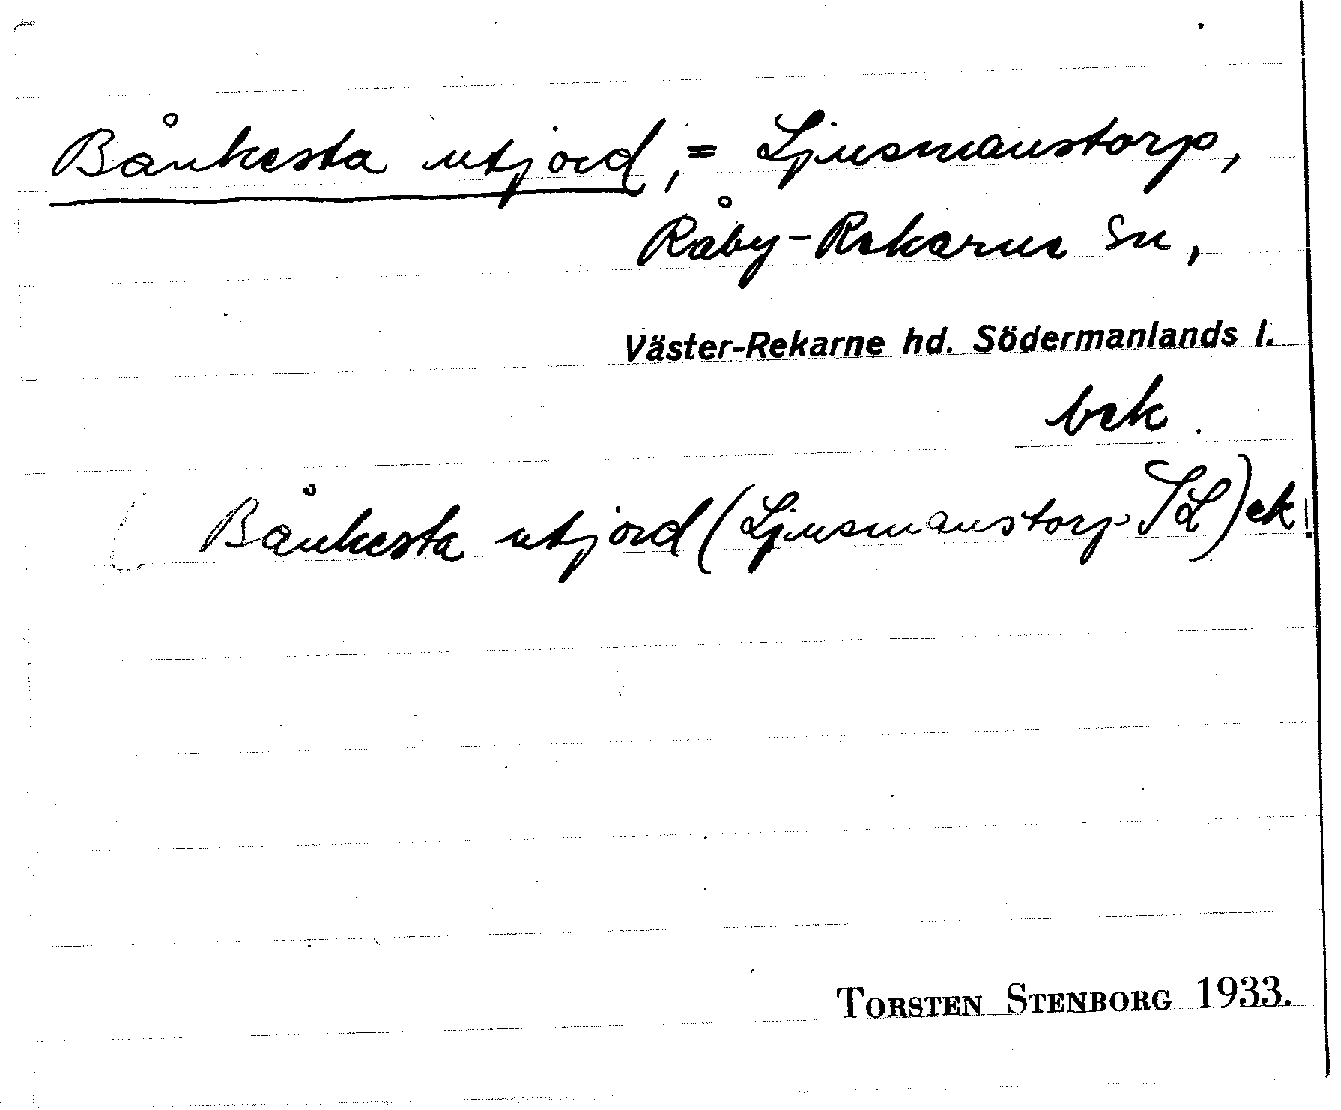 Bånkesta utjord, = Ljusmanstorp,
Råby-Rekarne Sn,
Väster-Rekarne hd. Södermanlands l.
bek.
Bånkesta utjord (Ljusmanstorp JL) ek!
TORSTEN STENBORG 1933.